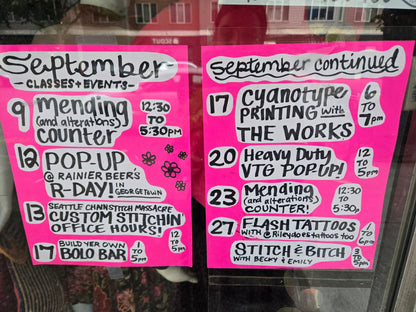 September
- CLASSES + EVENTS -
9 mending 12:30
(and alterations) TO
counter 5:30pm
12 POP-UP
@ RAINIER BEER'S
R-DAY! IN GEORGETOWN
13 SEATTLE CHAINSTITCH MASSACRE
CUSTOM STITCHIN' 12 TO 5pm
OFFICE HOURS!
17 BUILD YER OWN 1 TO 5pm
BOLO BAR
September continued
17 Cyanotype 6
PRINTING with TO
THE WORKS 7pm
20 Heavy Duty 12 TO
VTG POP UP! 5pm
23 Mending 12:30
(and alterations) TO
COUNTER! 5:30p
27 FLASH TATTOOS 1 TO
WITH @Rileydoestattoostoo 6pm
STITCH & BITCH 3 TO
WITH BECKY & EMILY 5pm